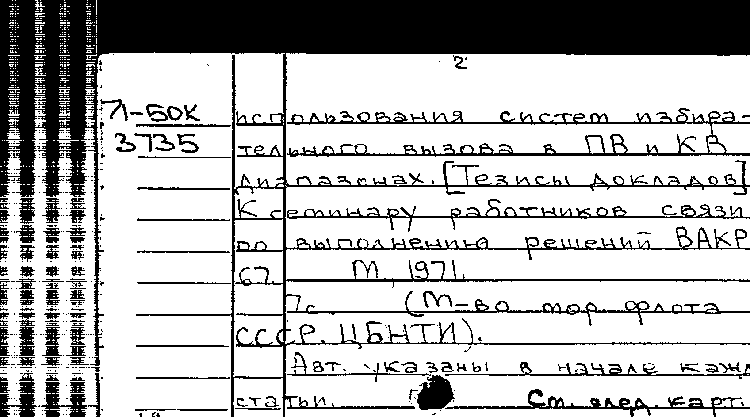 2
71-50К использования систем избира-
3735 тельного вызова в ПВ и КВ
диапазонах. [Тезисы докладов]
К семинару работников связи
по выполнению решений ВАКР
67. М, 1971.
7с. (М-во мор флота
СССР. ЦБНТИ).
Авт. указаны в начале кажд
статьи. См. след. карт.